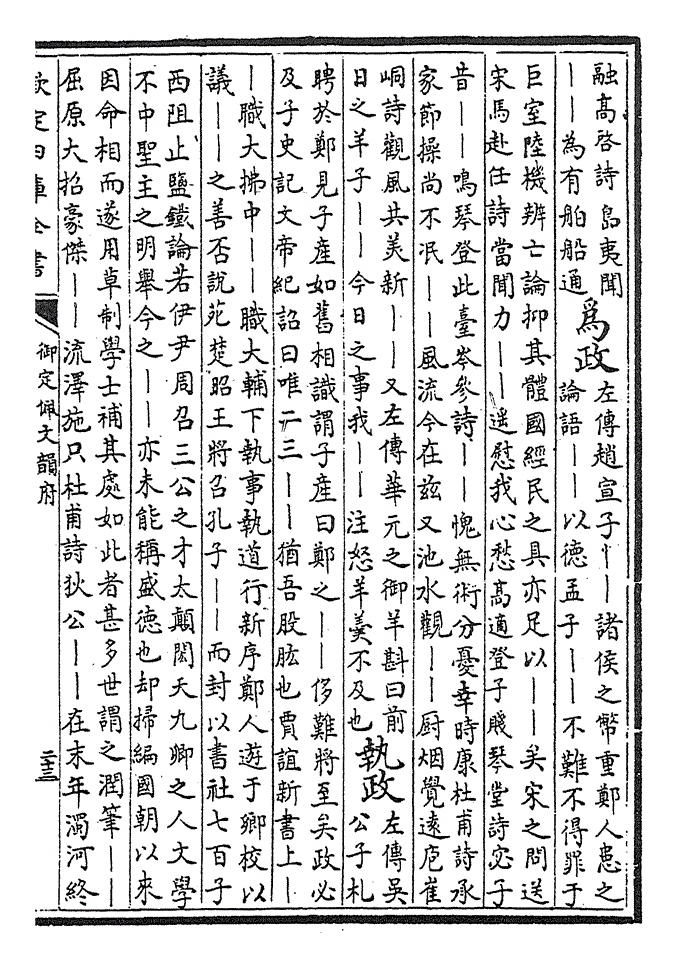 融高啓詩島夷聞
丨丨為有舶船通
爲政
左傳趙宣子丨丨諸侯之幣重鄭人患之
論語丨丨以德孟子丨丨不難不得罪于
巨室陸機辨亡論抑其體國經民之具亦足以丨丨矣宋之問送
宋馬赴任詩當聞力丨丨遥慰我心愁高適登子賤琴堂詩宓子
昔丨丨鳴琴登此臺岑參詩丨丨愧無術分憂幸時康杜甫詩承
家節操尚不泯丨丨風流今在兹又池水觀丨丨厨烟覺遠庖崔
峒詩觀風共美新丨丨又左傳華元之御羊斟曰前
日之羊子丨丨今日之事我丨丨注怒羊羹不及也
執政
左傳吳
公子札
聘於鄭見子產如舊相識謂子產曰鄭之丨丨侈難將至矣政必
及子史記文帝紀詔曰唯二三丨丨猶吾股肱也賈誼新書上丨
丨職大拂中丨丨職大輔下執事執道行新序鄭人遊于鄉校以
議丨丨之善否說苑楚昭王將召孔子丨丨而封以書社七百子
西阻止鹽鐵論若伊尹周召三公之才太顛閎夭九卿之人文學
不中聖主之明舉今之丨丨亦未能稱盛德也却掃編國朝以來
因命相而遂用草制學士補其處如此者甚多世謂之潤筆丨丨
屈原大招豪傑丨丨流澤施只杜甫詩狄公丨丨在末年濁河終
欽定四庫全書
御定佩文韻府
二十三